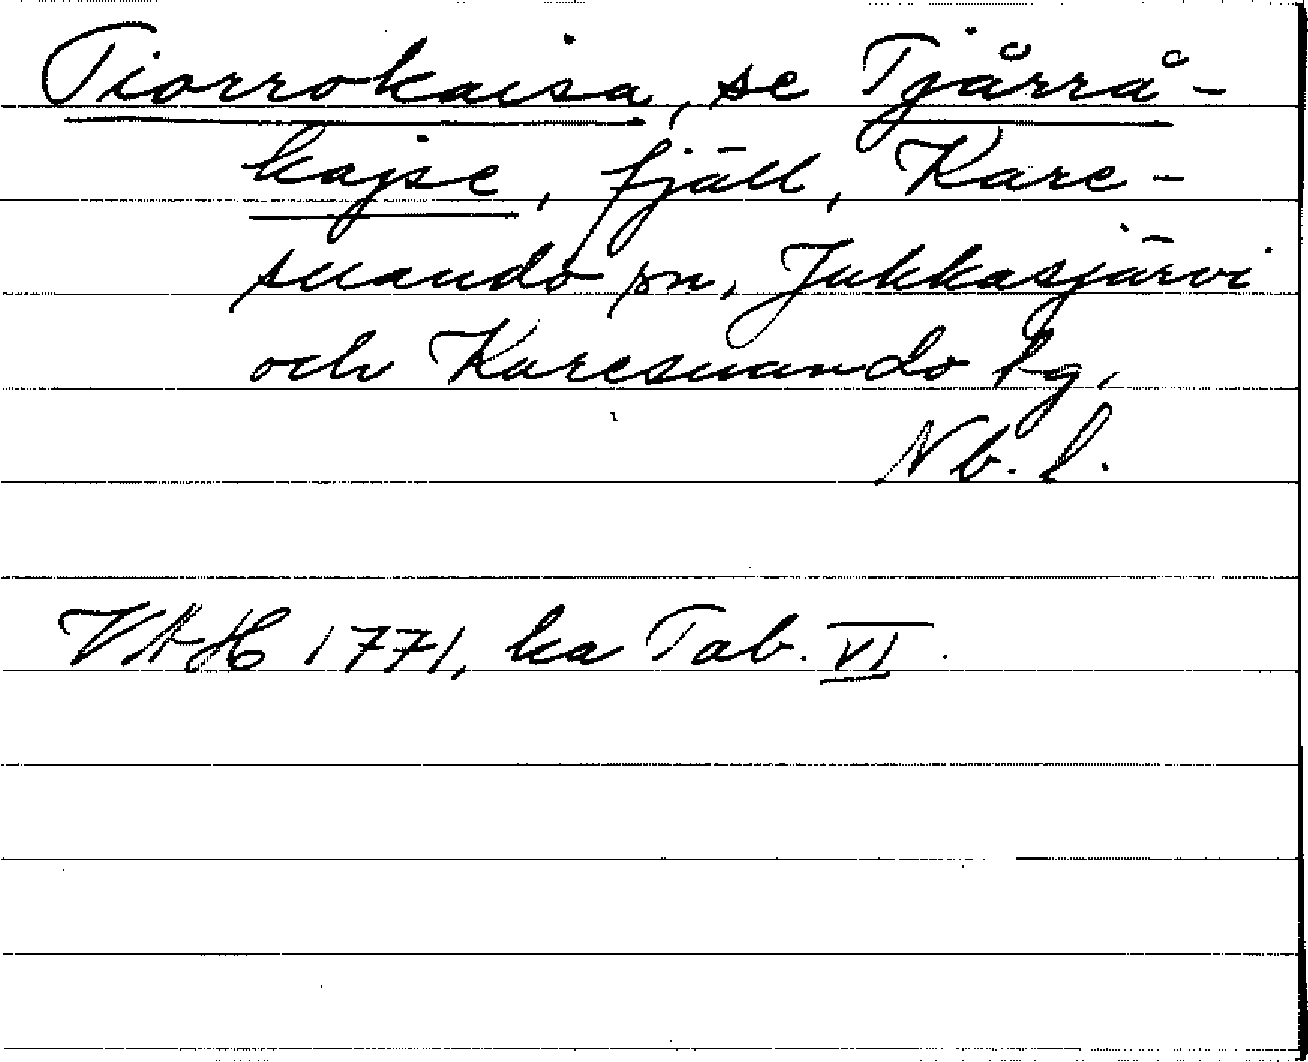 Tiorrokaisa, se Tjårrå-
kajse, fjäll, Kare-
suando sn, Jukkasjärvi
och Karesuando lg,
Nb. l.
VAH 1771, ka Tab. VI.